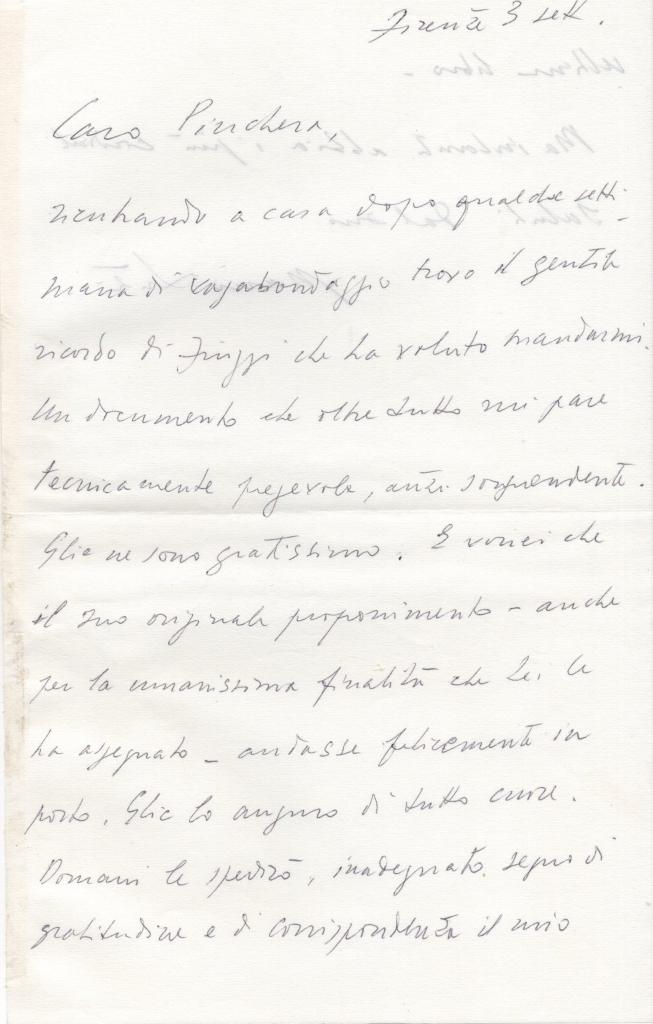 Firenze 3 sett.
Caro Pinchera,
rientrando a casa dopo qualche setti-
mana di vagabondaggio trovo il gentile
ricordo di Fiuggi che ha voluto mandarmi.
Un documento che oltre tutto mi pare
tecnicamente pregevole, anzi sorprendente.
Glie ne sono gratissimo. E vorrei che
il suo originale proponimento - anche
per la umanissima finalità che Lei le
ha assegnato - andasse felicemente in
porto. Glie lo auguro di tutto cuore.
Domani le spedirò, inadeguato segno di
gratitudine e di corrispondenza il mio